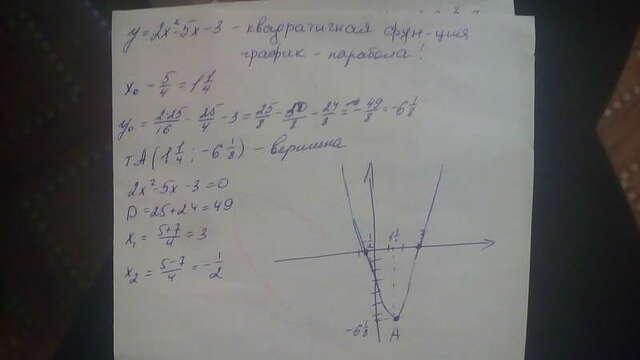 y=2x²-5x-3 - квадратичная фун-ция
график - парабола!
x₀ - 5/4 = 1 1/4
y₀ = 2·25/16 - 25/4 - 3 = 25/8 - 50/8 - 24/8 = -49/8 = -6 1/8
т.А(1 1/4; -6 1/8) - вершина
2x²-5x-3=0
D=25+24=49
x₁ = 5+7/4 = 3
x₂ = 5-7/4 = -1/2
-1/2 1 1/4 3
-6 1/8 A